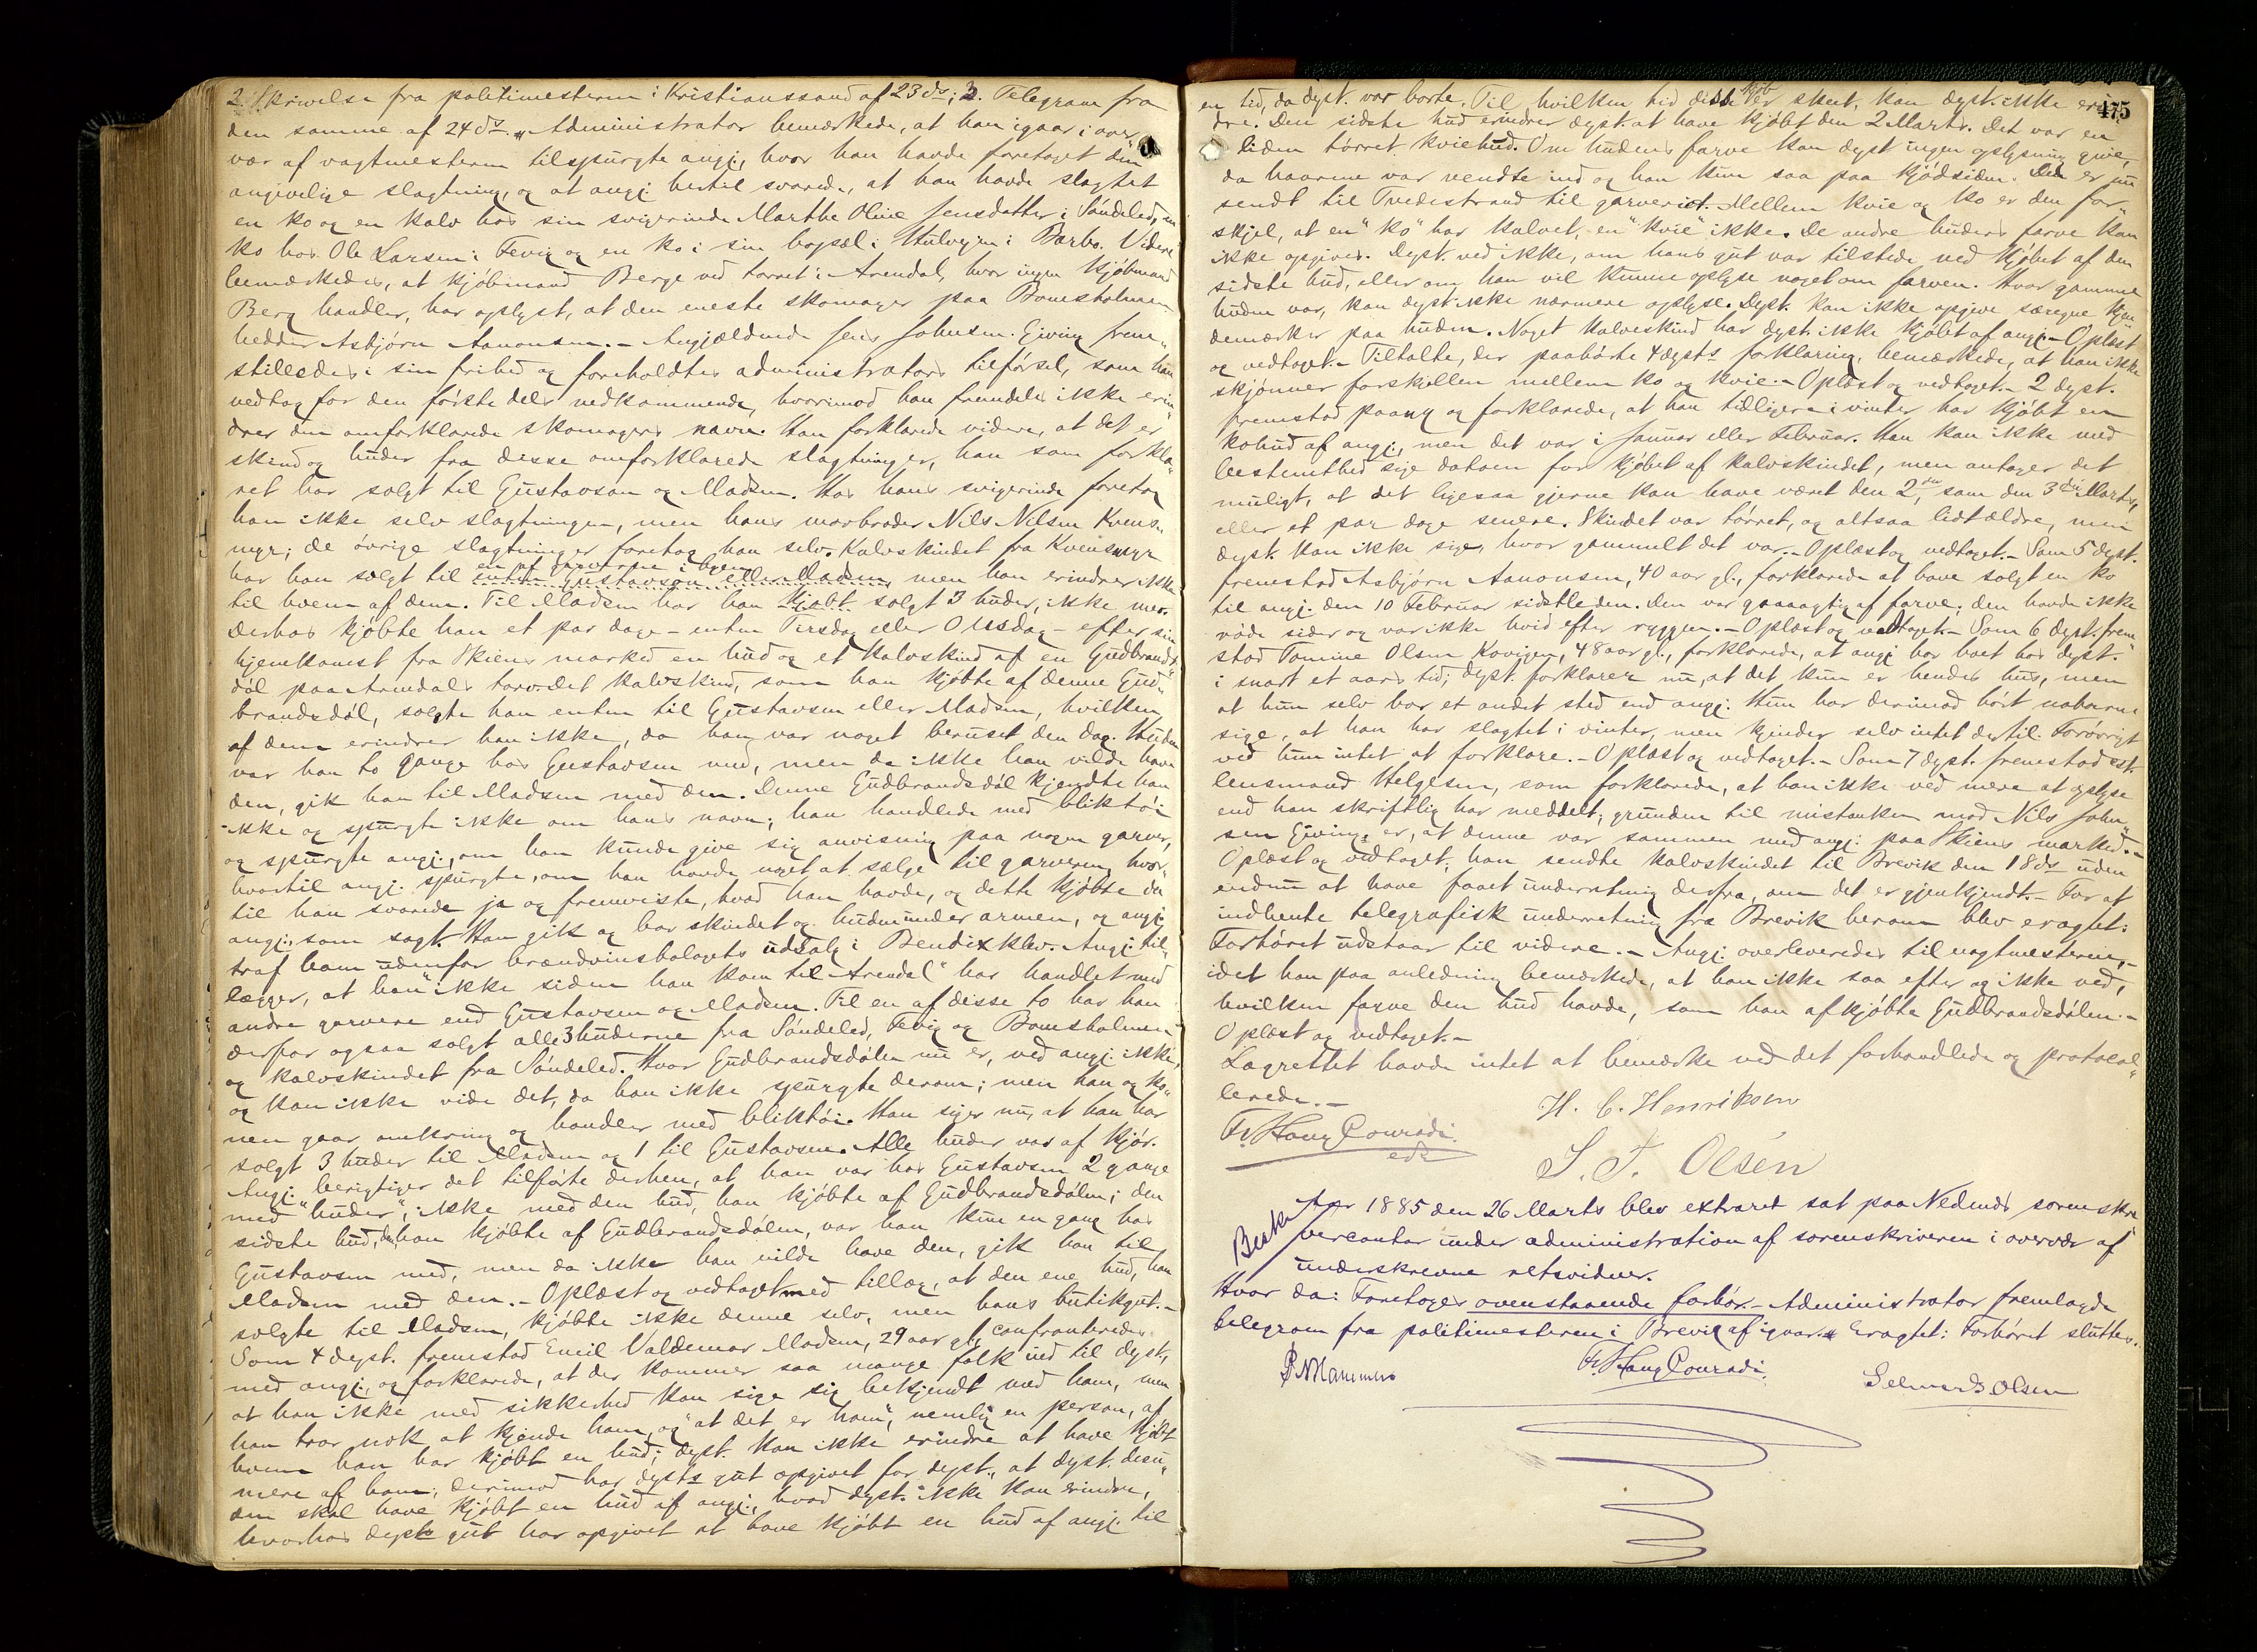 2. Skrivelse fra politimesteren i Kristianssand af 23 ds; 3. Telegram fra
den samme af 24 ds. Administrator bemærkede, at han igaar i over„
vær af vagtmesteren tilspurgte angj., hvor han havde foretaget den
angivelige slagtning, og at angj hertil svarede, at han havde slagtet
en ko og en kalv hos sin svigerinde Marthe Oline Jensdatter i Søndeled, en
ko hos Ole Larsen i Fevig og en ko i sin bopæl i i Barbo. Videre
bemærkedes, at kjøbmand Berge ved torvet i Arendal, hvor ingen kjøbmand
Berg handler, har oplyst, at den eneste skomager paa Bomsholmen
hedder Asbjørn Aanonsen. - Angjældende Jens Johnsen Gjeving frem„
stilledes i sin frihed og foreholdtes administrators tilførsel, som han
vedtog for den første dels vedkommende, hvorimod han fremdeles ikke erin„
drer den omforklarede skomagers navn. Han forklarede videre, at det er
skind og huder fra disse omforklarede slagtninger, han som forkla„
ret har solgt til Gustavson og Madsen. Hos hans svigerinde foretog
han ikke selv slagtningen, men hans morbroder Nils Nilsen Kvens„
myr; de øvrige slagtninger foretog han selv. Kalvskindet fra Kvensmyr
en af garverne i byen
har han sælgt til enten Gustavson eller Madsen, men han erindrer ikke
til hvem af dem. Til Madsen har han kjøbt solgt 3 huder, ikke mer.
Derhos kjøbte han et par dage - enten Tirsdag eller Onsdag - efter sin
hjemkomst fra Skiens marked en hud og et kalvskind af en Gudbrands„
døl paa Arendals torv. Det kalvskind, som han kjøbte af denne Gud„
brandsdøl, solgte han enten til Gustavsen eller Madsen, hvilken
af dem erindrer han ikke, da han var noget beruset den dag. Huden
var han to gange hos Gustavsen med, men da ikke han vilde have
den, gik han til Madsen med den. Denne Gudbrandsdøl kjendte han
ikke og spurgte ikke om hans navn; han handlede med bliktøi
og spurgte angj., om han kunde give sig anvisning paa nogen garver,
hvortil angj. spurgte, om han havde noget at sælge til garveren, hvor„
til han svarede ja og fremviste, hvad han havde, og dette kjøbte da
angj., som sagt. Han gik og bar skindet og huden under armen, og angj.
traf ham udenfor brændvinsbolagets udsalg i Bendixklev. Angj. til„
lægger, at han "ikke siden han kom til Arendal" har handlet med
andre garvere end Gustavsen og Madsen. Til en af disse to har han
derfor ogsaa solgt alle 3 huderne fra Søndeled, Fevig og Bomsholmen
og kalvskindet fra Søndeled. Hvor Gudbrandsdølen nu er, ved angj. ikke,
og kan ikke vide det, da han ikke spurgte derom; men han og ko„
nen gaar omkring og handler med bliktøi. Han siger nu, at han har
solgt 3 huder til Madsen og 1 til Gustavsen. Alle huder var af kjør.
Angj. berigtiger det tilførte derhen, at han var hos Gustavsen 2 gange
med "huder", ikke med den hud, han kjøbte af Gudbrandsdølen; den
sidste hud, den han kjøbte af Gudbrandsdølen, var han kun en gang hos
Gustavsen med, men da ikke han vilde have den, gik han til
Madsen med den. - Oplæst og vedtaget med tillæg, at den ene hud, han
solgte til Madsen, kjøbte ikke denne selv, men hans butikgut. -
Som 4 dept. fremstod Emil Valdemar Madsen, 29 aar gl, confronteredes
med angj., og forklarede, at der kommer saa mange folk ind til dept,
at han ikke med sikkerhed kan sige sig bekjendt med ham, men
han tror nok at kjende ham, og "at det er ham", nemlig en person, af
hvem han har kjøbt en hud; dept. kan ikke erindre at have kjøbt
mere af ham; derimod har depts gut opgivet for dept., at dept. desu„
den skal have kjøbt en hud af angj., hvad dept. ikke kan erindre,
hvorhos depts gut har opgivet at have kjøbt en hud af angj. til
475
en tid, da dept. var borte. Til hvilken tid disse kjøb er skeet, kan dept. ikke erin„
dre. Den sidste hud erindrer dept. at have kjøbt den 2 Marts. Det var en
liden tørret kviehud. Om hudens farve kan dept ingen oplysning give,
da haarene var vendte ind og han kun saa paa kjødsiden. Den er nu
sendt til Tvedestrand til garveriet. Mellem kvie og ko er den for„
skjel, at en "ko" har kalvet, en "kvie" ikke. De andre huders farve kan
ikke opgives. Dept. ved ikke, om hans gut var tilstede ved kjøbet af den
sidste hud, eller om han vil kunne oplyse noget om farven. Hvor gamme
huden var, kan dept ikke nærmere oplyse. Dept. kan ikke opgive særegne kjen„
demærker paa huden. Noget kalveskind har dept. ikke kjøbt af angj. - Oplæst
og vedtaget. - Tiltalte, der paahørte 4 depts forklaring, bemærkede, at han ikke
skjønner forskellen mellem ko og kvie. - Oplæst og vedtaget. - 2 dept.
fremstod paany og forklarede, at han tidligere i vinter har kjøbt en
kohud af angj., men det var i Januar eller Februar. Han kan ikke med
bestemthed sige datoen for kjøbet af kalvskindet, men antager det
muligt, at det ligesaa gjerne kan have været den 2den, som den 3die Marts,
eller et par dage senere. Skindet var tørret, og altsaa lidt ældre, men
dept. kan ikke sige, hvor gammelt det var. - Oplæst og vedtaget. - Som 5 dept.
fremstod Asbjørn Aanonsen, 40 aar gl., forklarede at have solgt en ko
til angj. den 10 Februar sidstleden. Den var graaagtig af farve; den havde ikke
røde sider og var ikke hvid efter ryggen. - Oplæst og vedtaget. - Som 6 dept. frem„
stod Tomine Olsen Kovigen, 48 aar gl., forklarede, at angj har boet hos dept.
i snart et aars tid; dept. forklarer nu, at det kun er hendes hus, men
at hun selv bor et andet sted end angj. Hun har derimod hørt naboerne
sige, at han har slagtet i vinter, men kjender selv intet dertil. Forøvrigt
ved hun intet at forklare. - Oplæst og vedtaget. - Som 7 dept. fremstod
lensmand Helgesen, som forklarede, at han ikke ved mere at oplyse
end han skriftlig har meddelt; grunden til mistanken mod Nils John„
sen Gjeving er, at denne var sammen med angj. paa Skiens marked. -
Oplæst og vedtaget; han sendte kalvskindet til Brevik den 18 ds uden
endnu at have faaet underretning derfra, om det er gjenkjendt. - For at
indhente telegrafisk underretning fra Brevik herom blev eragtet:
Forhøret udstaar til videre. - Angj. overleveredes til vagtmesteren, -
idet han paa anledning bemærkede, at han ikke saa efter og ikke ved,
hvilken farve den hud havde, som han afkjøbte Gudbrandsdølen. -
Oplæst og vedtaget. -
Lagrettet havde intet at bemærke ved det forhandlede og protocol„
lerede. -
H. C. Henriksen
Fr. Hang Conradi
eds
S. T. Olsen
Besk.
Aar 1885 den 26 Marts blev extraret sat paa Nedenæs sorenskri
vercontor under administration af sorenskriveren i overvær af
underskrevne retsvidner.
Hvor da: Foretoges ovenstaaende forhør. - Administrator fremlagde
telegram fra politimesteren i Brevig af igaar. Eragtet: Forhøret sluttes.
Fr. Hang Conradi.
Selmer B. Olsen